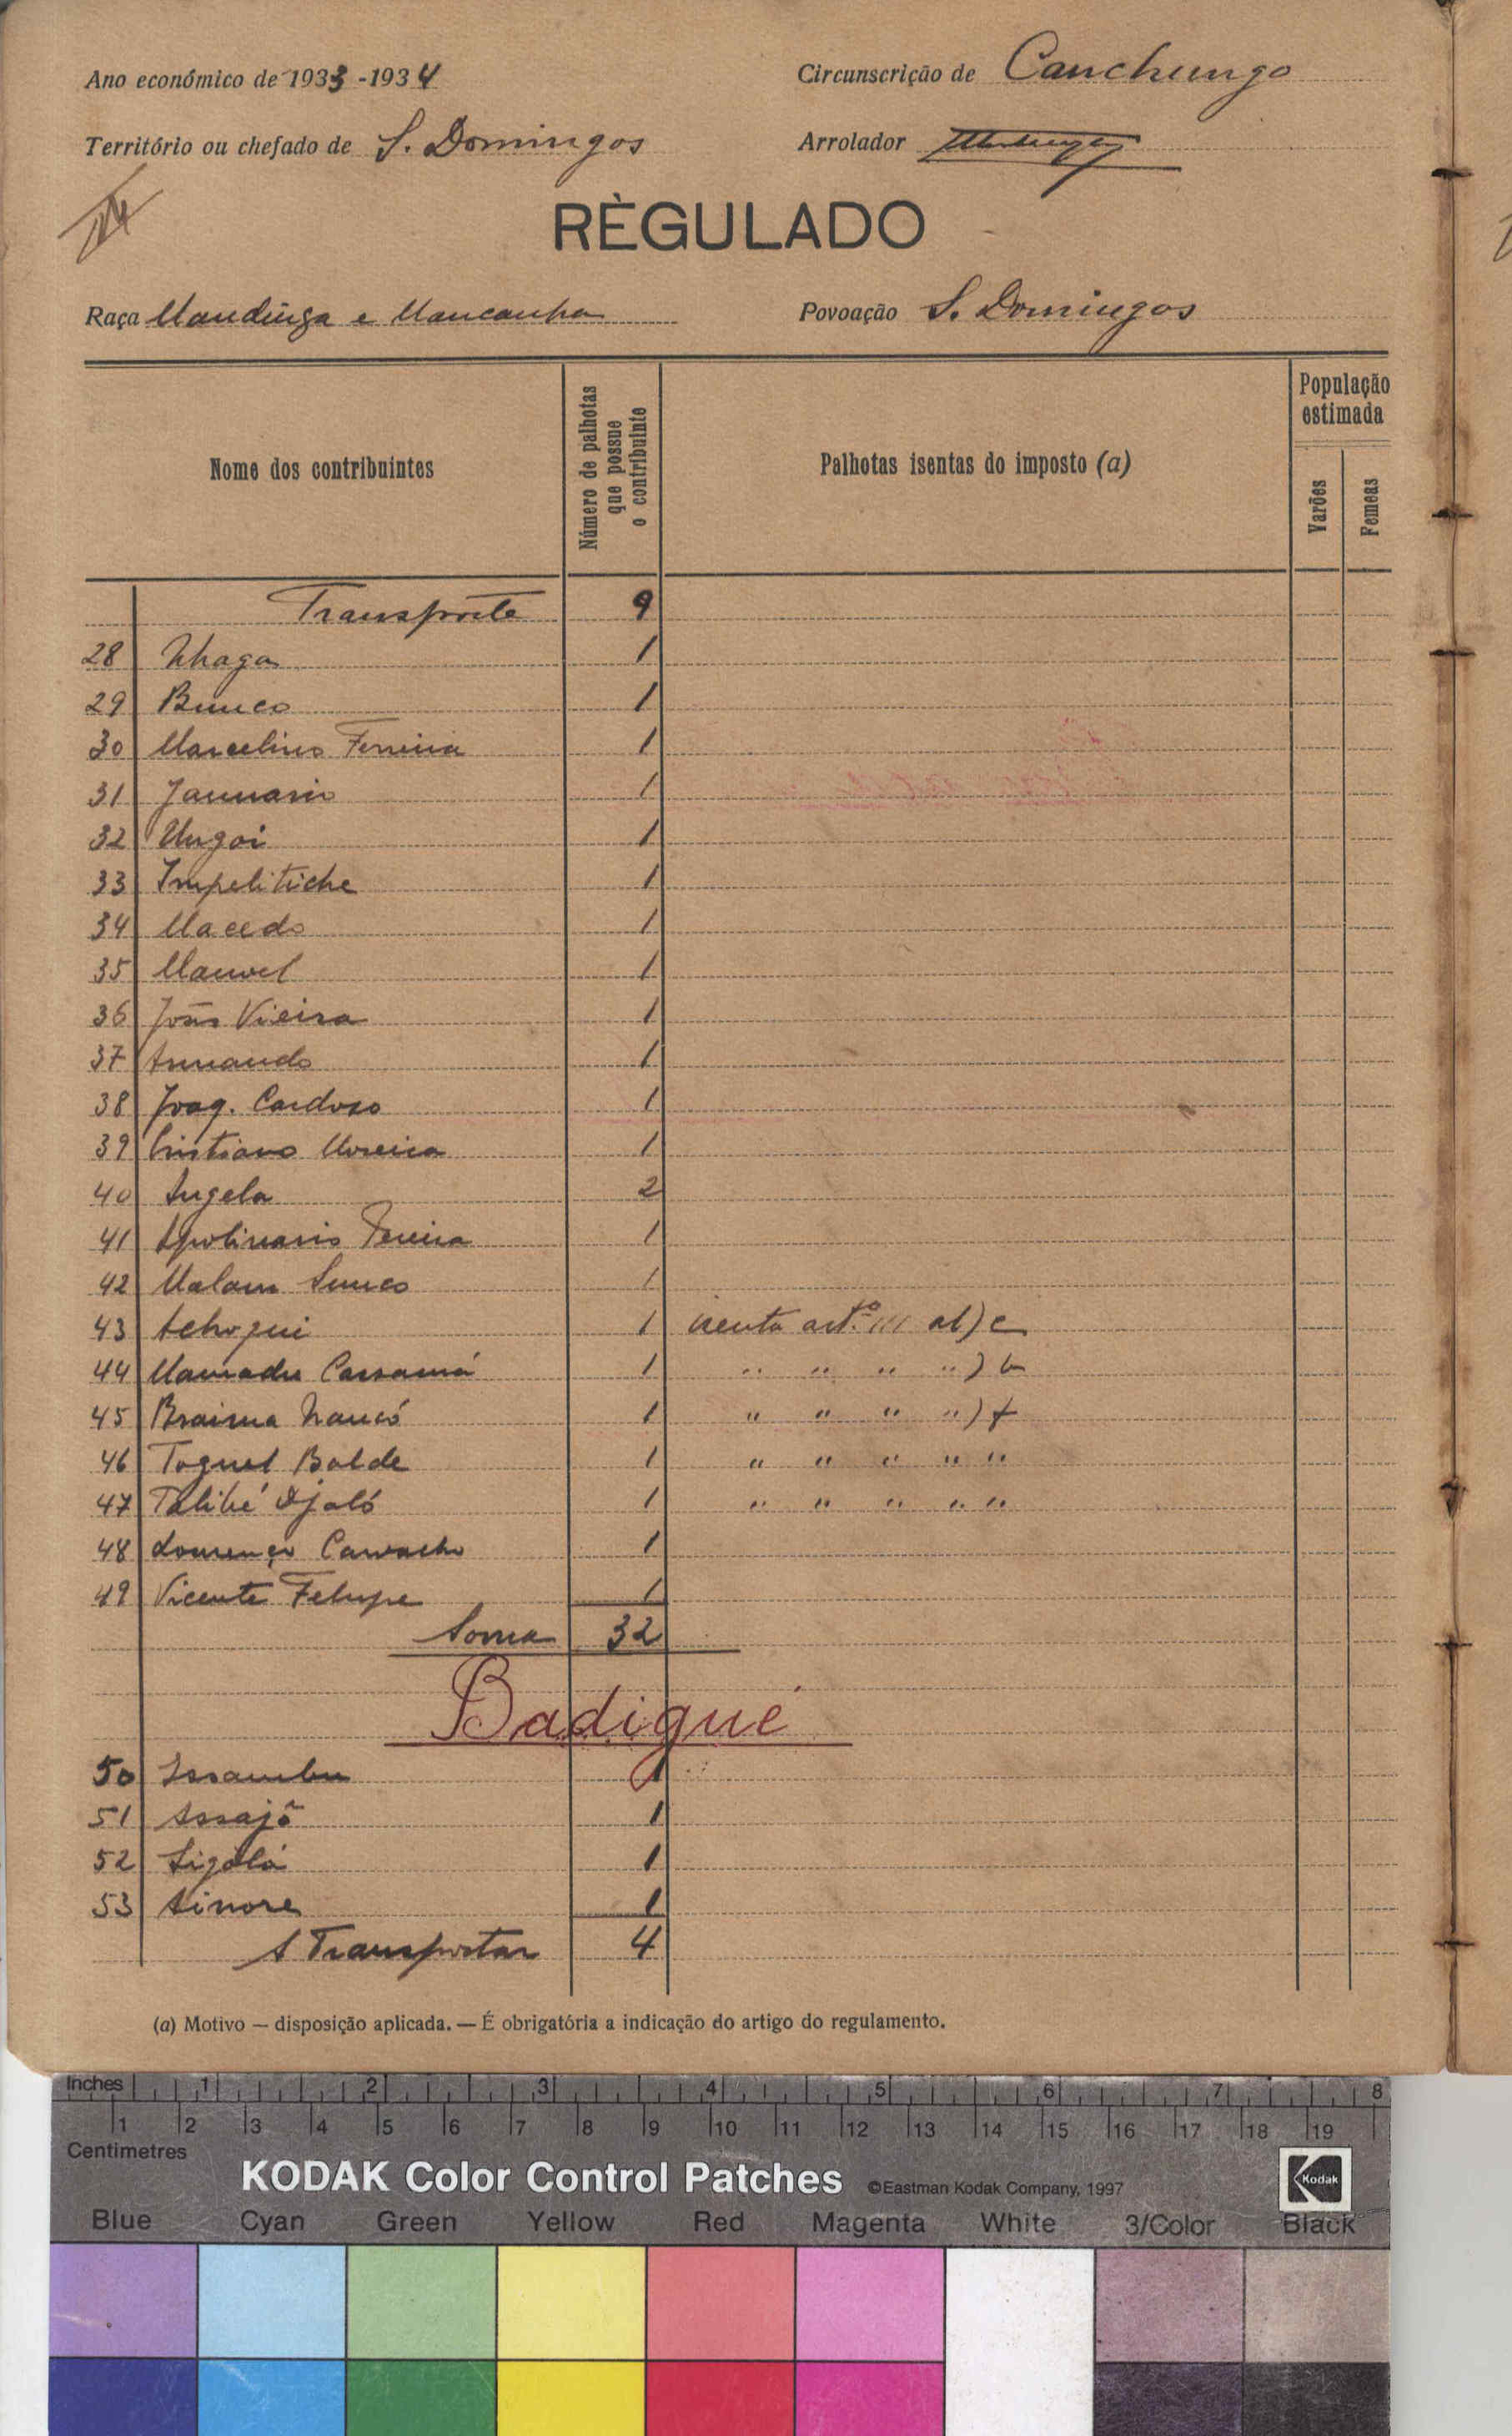 Ano económico de 1933-1934
Circunscrição de Canchungo
Território ou chefado de S. Domingos
Arrolador
RÈGULADO
Raça Mandinga e Mancanha
Povoação S. Domingos
Nome dos contribuintes
Número de palhotas que possue o contribuinte
Palhotas isentas do imposto (a)
População estimada
Varões
Femeas
Transporte 9
28 Nhaga 1
29 Bunco 1
30 Marcelino Ferreira 1
31 Januario 1
32 Ungoi 1
33 Impelitiche 1
34 Macedo 1
35 Manuel 1
36 João Vieira 1
37 Armando 1
38 Joaq. Cardoso 1
39 Cristiano Moreira 1
40 Angela 2
41 Apolinario Pereira 1
42 Malam Sunco 1
43 Achoqui 1 isenta artº 111 al) c
44 Mamadu Cassamá 1 " " " ") b
45 Braima Nancó 1 " " " ") f
46 Toguel Balde 1 " " " " "
47 Talibé Djaló 1 " " " " "
48 Lourenço Carvalho 1
49 Vicente Felupe 1
Soma 32
Badigué
50 Issambu 1
51 Assajô 1
52 Sigólá 1
53 Sinore 1
A Transportar 4
(a) Motivo — disposição aplicada. — É obrigatória a indicação do artigo do regulamento.
Inches 1 2 3 4 5 6 7 8
1 2 3 4 5 6 7 8 9 10 11 12 13 14 15 16 17 18 19
Centimetres
KODAK Color Control Patches ©Eastman Kodak Company, 1997 Kodak
Blue Cyan Green Yellow Red Magenta White 3/Color Black